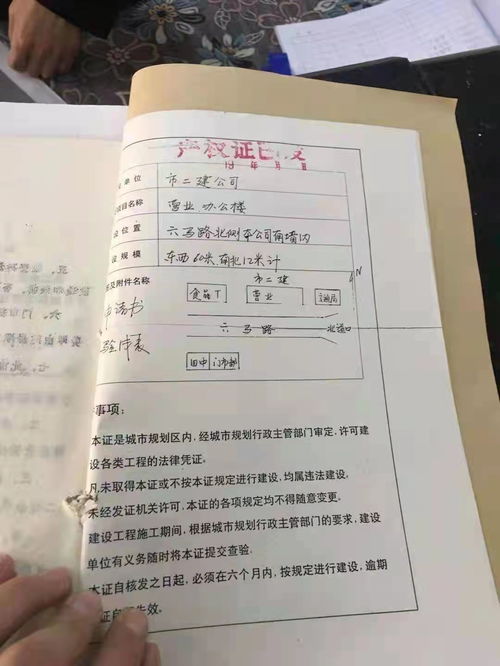 产权证已发
19 年 月 日
单位 市二建公司
项目名称 营业办公楼
设位置 六马路北侧本公司南墙内
设规模 东西60米南北12米计
及附件名称
市二建
N
食品厂 营业
请书
六马路
北道口
门市部
事项:
本证是城市规划区内,经城市规划行政主管部门审定,许可建
设各类工程的法律凭证。
凡未取得本证或不按本证规定进行建设,均属违法建设。
未经发证机关许可,本证的各项规定均不得随意变更。
建设工程施工期间,根据城市规划行政主管部门的要求,建设
单位有义务随时将本证提交查验.
本证自核发之日起,必须在六个月内,按规定进行建设,逾期
证自 失效。